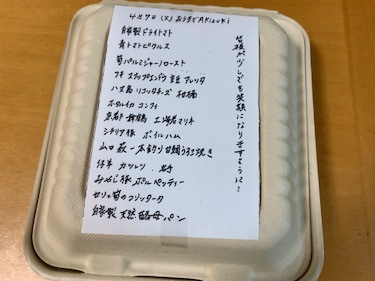 4月7日(火)おうちでAkizuki
自家製ドライトマト
青トマトピクルス
筍パルミジャーノロースト
フキ スナップエンドウ 空豆 アレッタ
八丈島リコッタチーズ 柑橘
ホタルイカ コンフィ
シチリア豚 ボイルハム
山口 萩 一本釣り 甘鯛うろこ焼き
仔羊 カツレツ
みやじ豚 ポルペッティー
セリと筍のフリッタータ
自家製 天然酵母パン
皆様が少しでも笑顔になりますように!